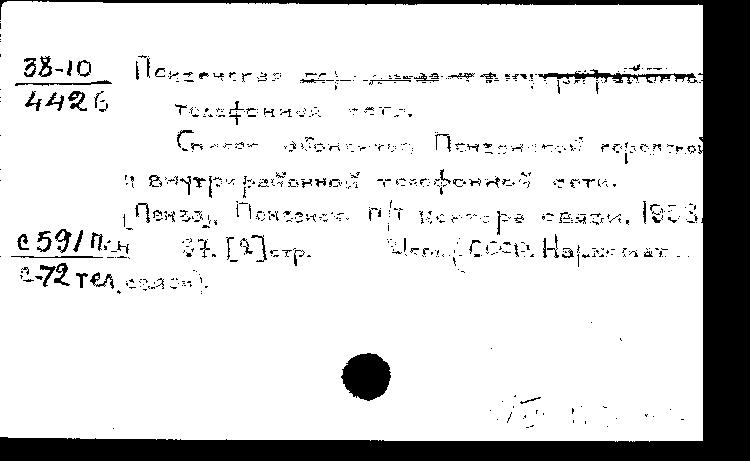 38-10 Пензенская городская и внутрирайонная
442б телефонная сеть.
Список абонентов Пензенской городской
и внутрирайонной телефонной сети.
[Пенза], Пензенск. п/т контора связи, 1938.
с59/Пен 37. [2] стр. (СССР. Наркомат
с-72 тел. связи).